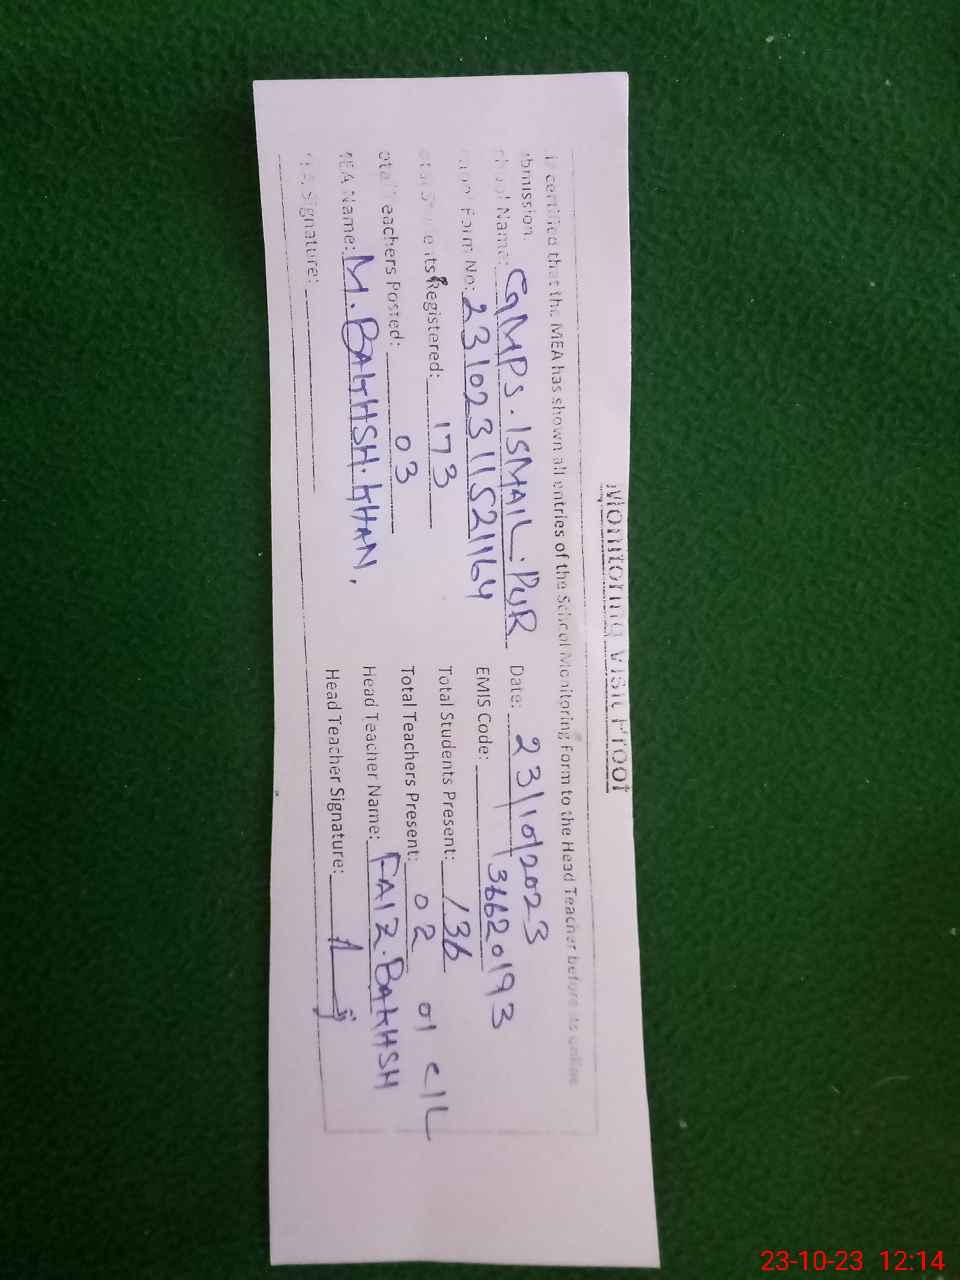 Monitoring Visit Proof
is certified that the MEA has shown all entries of the School Monitoring Form to the Head Teacher before its online
bmission.
chool Name: GMPS. ISMAIL. PUR Date: 23/10/2023
Form No: 23102311521164 EMIS Code: 36620193
Registered: 173 Total Students Present: 136
otal Teachers Posted: 03 Total Teachers Present: 02 01 C/L
MEA Name: M. BAKHSH. KHAN, Head Teacher Name: FAIZ. BAKHSH
Signature: Head Teacher Signature:
23-10-23 12:14